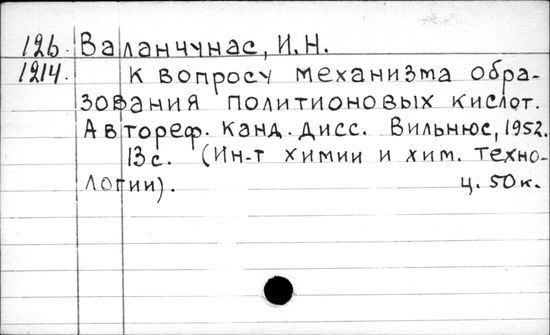 126. Валанчунас, И.Н.
1214. К вопросу механизма обра-
зования политионовых кислот.
Автореф. канд. дисс. Вильнюс, 1952.
13 с. (Ин-т химии и хим. техно-
логии). ц. 50 к.